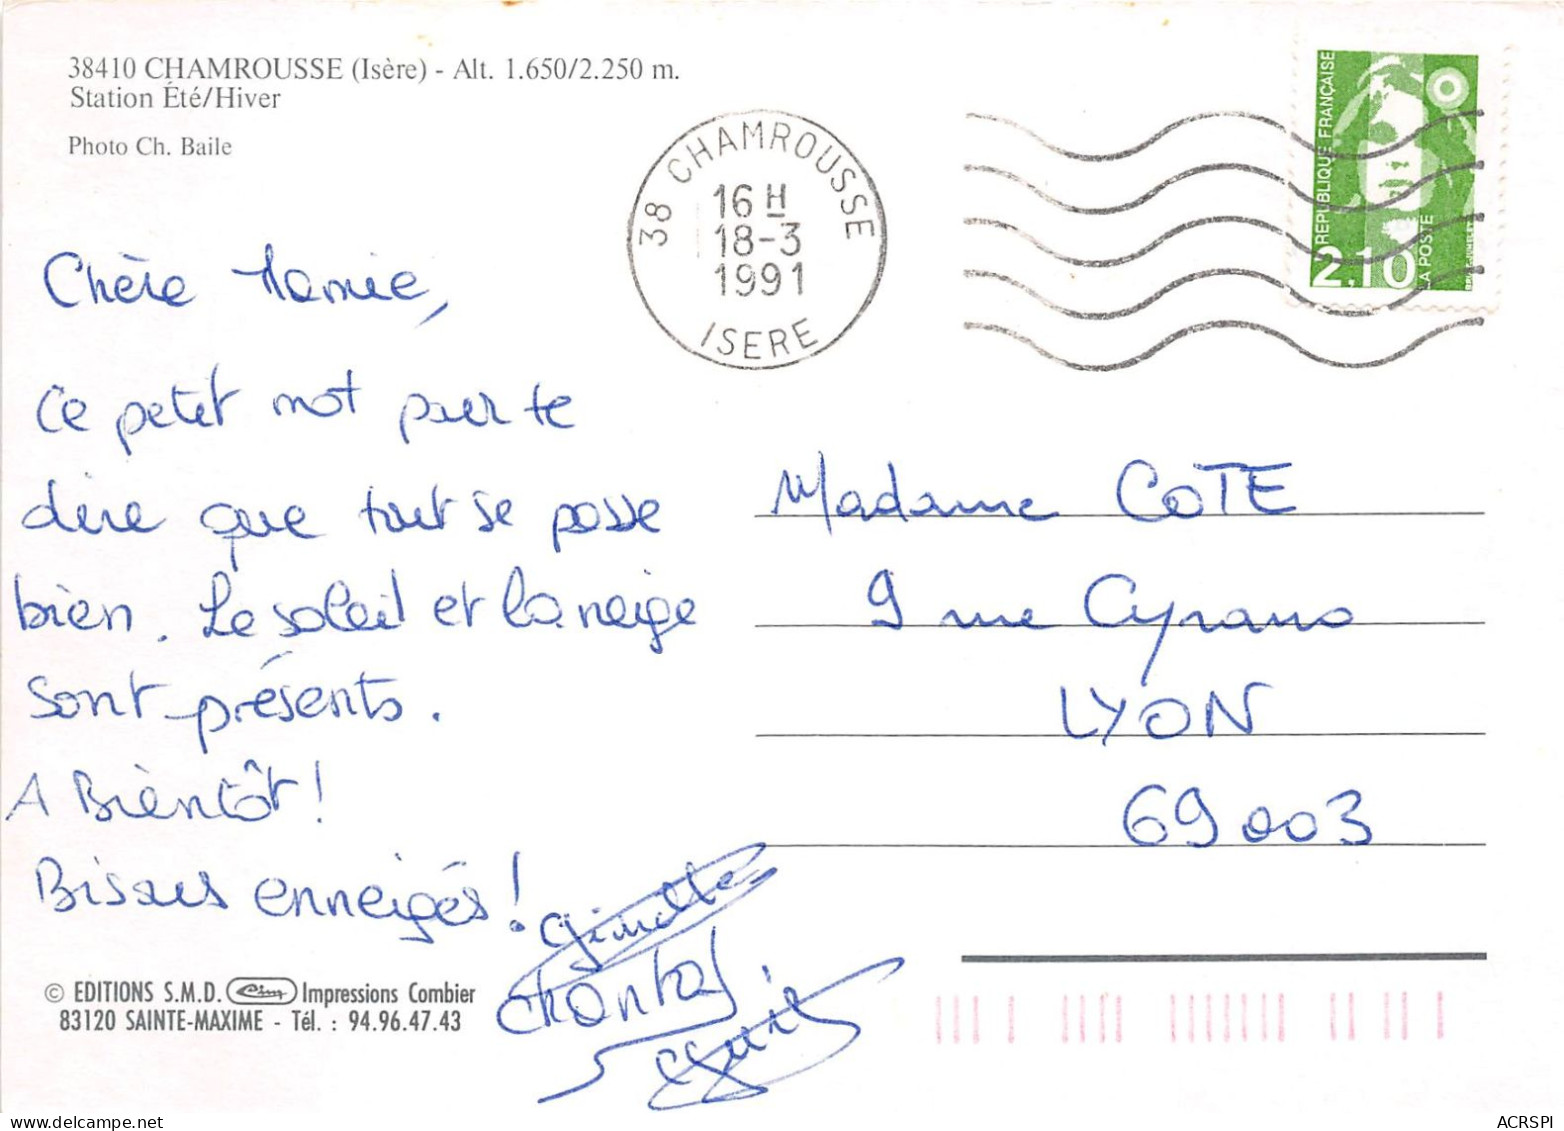 38410 CHAMROUSSE (Isère) - Alt. 1.650/2.250 m.
Station Été/Hiver
Photo Ch. Baile
38 CHAMROUSSE
16 H
18-3
1991
ISERE
REPUBLIQUE FRANÇAISE
LA POSTE
2,10
Chère Mamie,
Ce petit mot pour te
dire que tout se passe
bien. Le soleil et la neige
sont présents.
A Bientôt!
Bisous enneigés!
Chantal
Madame COTE
9 rue Cyrano
LYON
69003
© EDITIONS S.M.D. Cim Impressions Combier
83120 SAINTE-MAXIME - Tél. : 94.96.47.43
ACRSPI